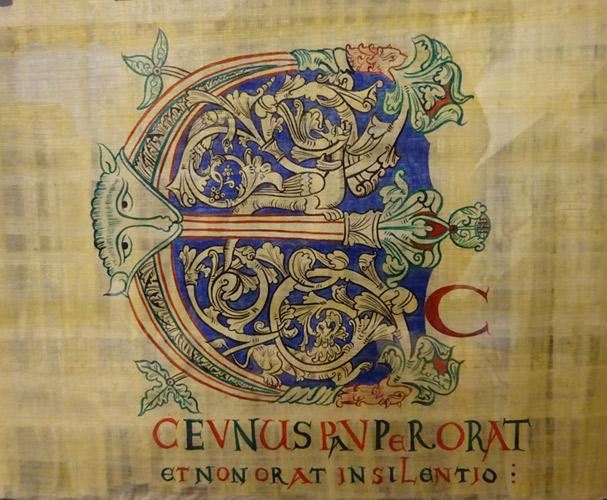 E
C
CEVNUS PAVPeRORAT
ETNONORAT INSILENTIO :